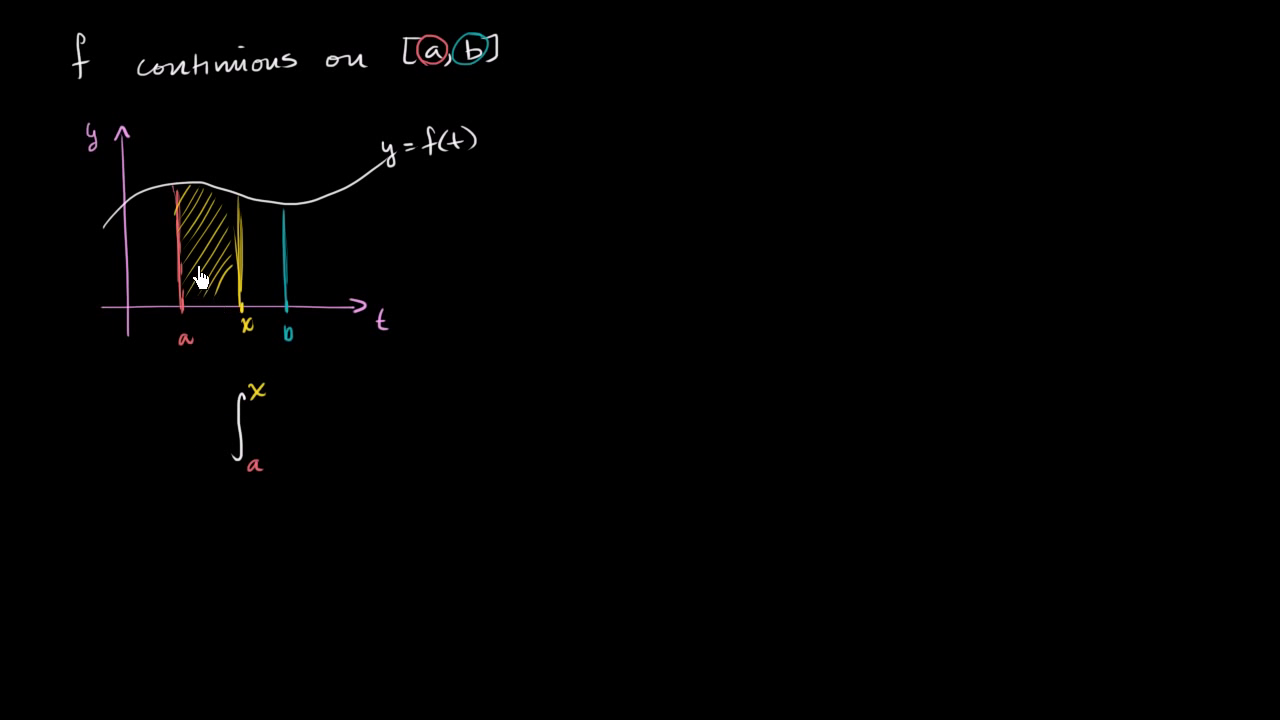 f continuous on [a,b]
y
y = f(t)
a
x
b
t
∫
x
a